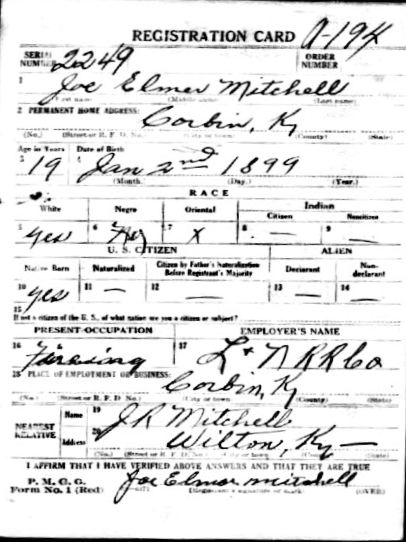 REGISTRATION CARD A-194
SERIAL NUMBER 2249 ORDER NUMBER
1 Joe Elmer Mitchell
(First name) (Middle name) (Last name)
2 PERMANENT HOME ADDRESS:
Corbin, Ky
(No.) (Street or R. F. D. No.) (City or town) (County) (State)
Age in Years Date of Birth
3 19 4 Jan 2nd 1899
(Month.) (Day.) (Year.)
RACE
White Negro Oriental Indian
Citizen Noncitizen
5 yes 6 7 X 8 — 9 —
U. S. CITIZEN ALIEN
Native Born Naturalized Citizen by Father's Naturalization Before Registrant's Majority Declarant Non-declarant
10 yes 11 — 12 — 13 — 14 —
15
If not a citizen of the U. S., of what nation are you a citizen or subject?
PRESENT OCCUPATION EMPLOYER'S NAME
16 Firing 17 L & N R R Co
18 PLACE OF EMPLOYMENT OR BUSINESS:
Corbin, Ky
(No.) (Street or R. F. D. No.) (City or town) (County) (State)
NEAREST RELATIVE
Name 19 J R Mitchell
Address 20 Wilton, Ky —
(No.) (Street or R. F. D. No.) (City or town) (County) (State)
I AFFIRM THAT I HAVE VERIFIED ABOVE ANSWERS AND THAT THEY ARE TRUE
P. M. G. O.
Form No. 1 (Red) Joe Elmer Mitchell
(Registrant's signature or mark) (OVER)